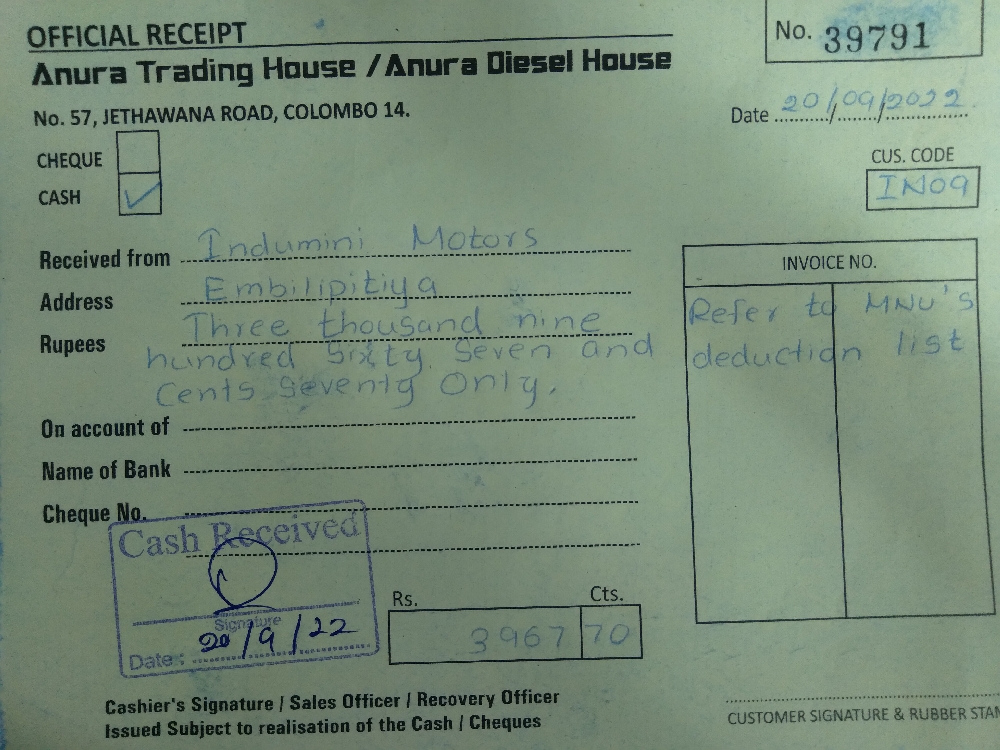 OFFICIAL RECEIPT
No. 39791
Anura Trading House / Anura Diesel House
No. 57, JETHAWANA ROAD, COLOMBO 14.
Date 20/09/2022
CHEQUE
CUS. CODE
CASH ✓
IN09
Received from Indumini Motors
INVOICE NO.
Address Embilipitiya
Refer to MNU's
Rupees Three thousand nine
hundred Sixty Seven and
deduction list
Cents Seventy Only.
On account of
Name of Bank
Cheque No.
Cash Received
Signature
Date : 20/9/22
Rs. Cts.
3967 70
Cashier's Signature / Sales Officer / Recovery Officer
Issued Subject to realisation of the Cash / Cheques
CUSTOMER SIGNATURE & RUBBER STAN